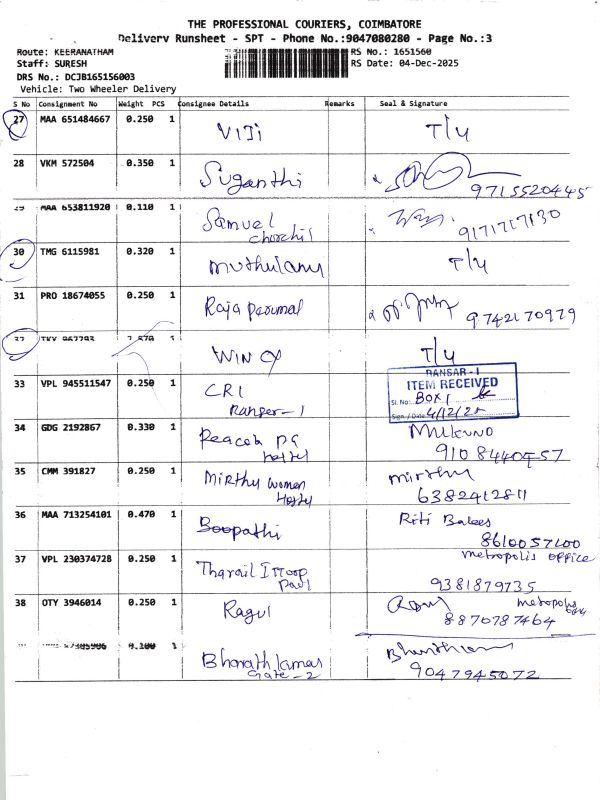 THE PROFESSIONAL COURIERS, COIMBATORE
Delivery Runsheet - SPT - Phone No.:9047080280 - Page No.:3
Route: KEERANATHAM
RS No.: 1651560
Staff: SURESH
RS Date: 04-Dec-2025
DRS No.: DCJB165156003
Vehicle: Two Wheeler Delivery
S No Consignment No Weight PCS Consignee Details Remarks Seal & Signature
27 MAA 651484667 0.250 1 VIJI T/4
28 VKM 572504 0.350 1 Suganthi
9715520445
29 MAA 653811920 0.110 1 Samuel
churchil 9171717130
30 TMG 6115981 0.320 1 muthulany T/4
31 PRO 18674055 0.250 1 Raja perumal 9742170979
32 1 WIN T/4
RANSAR - I
33 VPL 945511547 0.250 1 CRI ITEM RECEIVED
Sl. No: BOX 1
Ranser-1 Sign / Date 4/12/25
34 GDG 2192867 0.330 1 Peacock PG
hostel
35 CMM 391827 0.250 1 Mirthu women mirthu
Hostel 6382412811
36 MAA 713254101 0.470 1 Boopathi Riti
8610057100
metropolis office
37 VPL 230374728 0.250 1 Tharail Ittoop
Paul 9381879735
38 OTY 3946014 0.250 1 Ragul metropolis
8870787464
0.100 1 Bharath kumar
Gate-2 9047945072